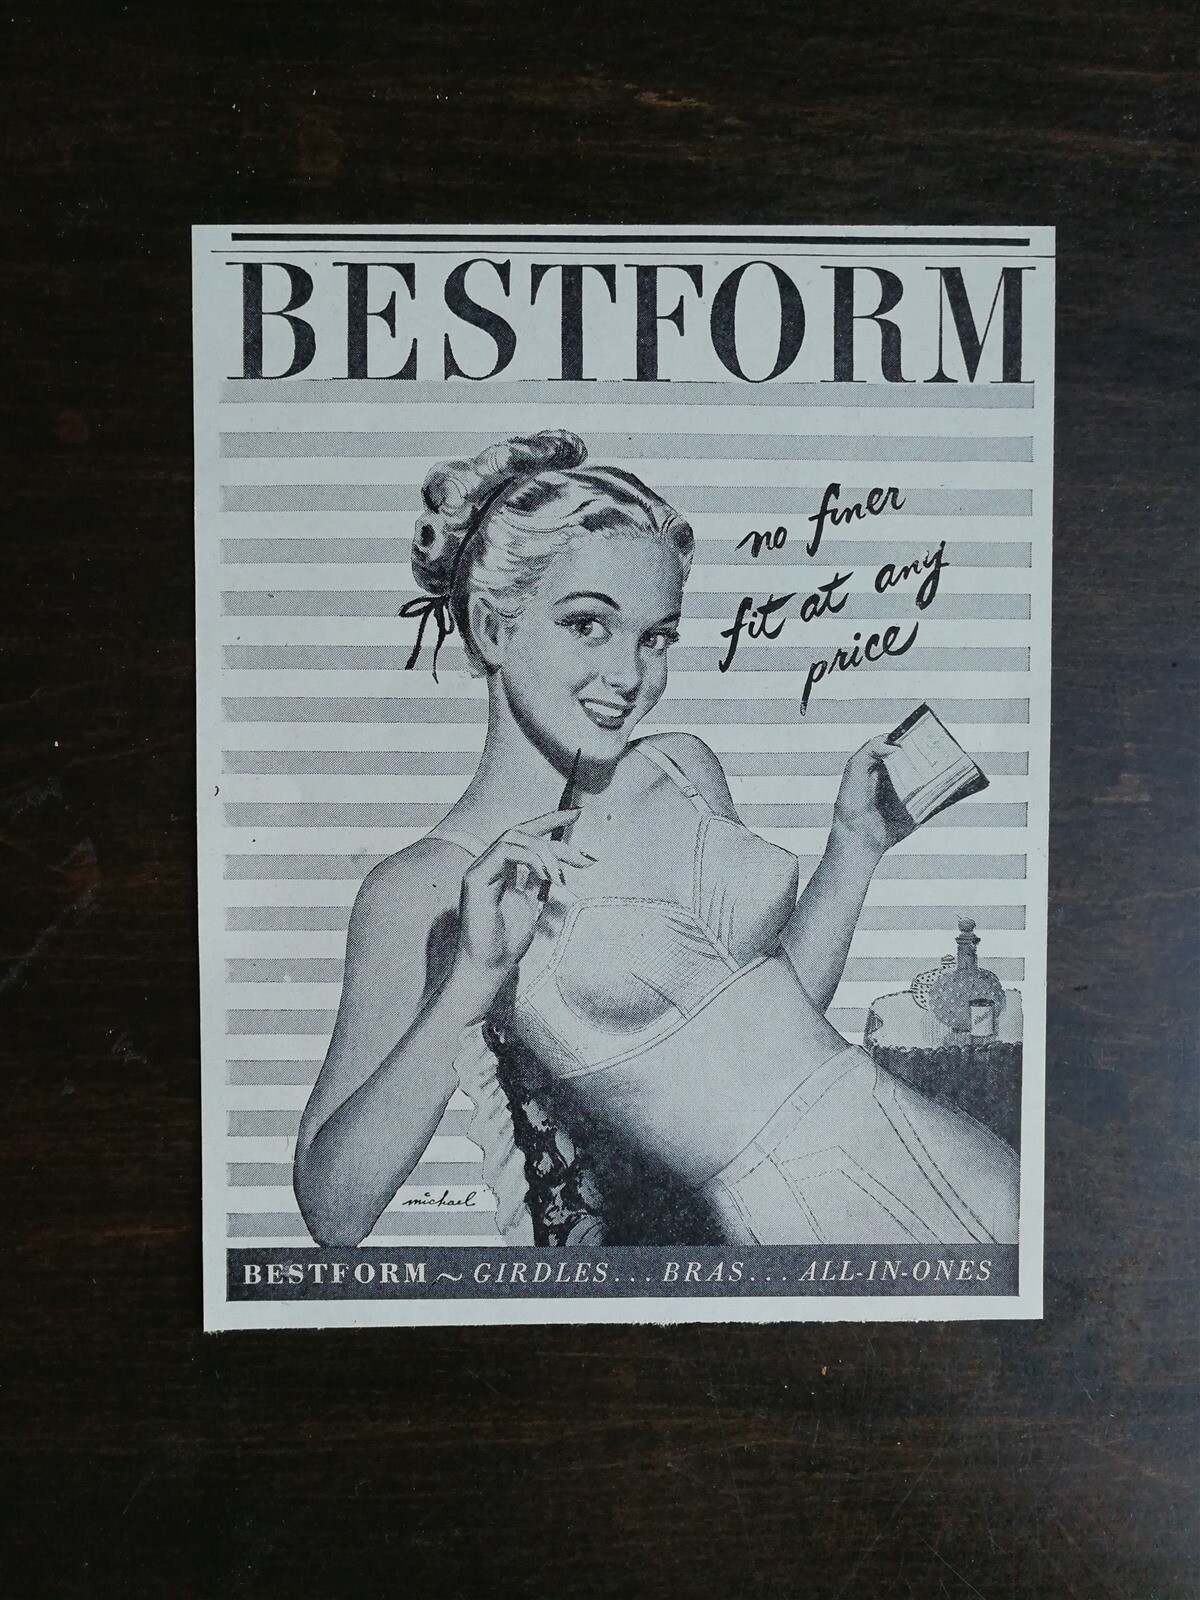 BESTFORM
no finer
fit at any
price
michael
BESTFORM ~ GIRDLES... BRAS... ALL-IN-ONES